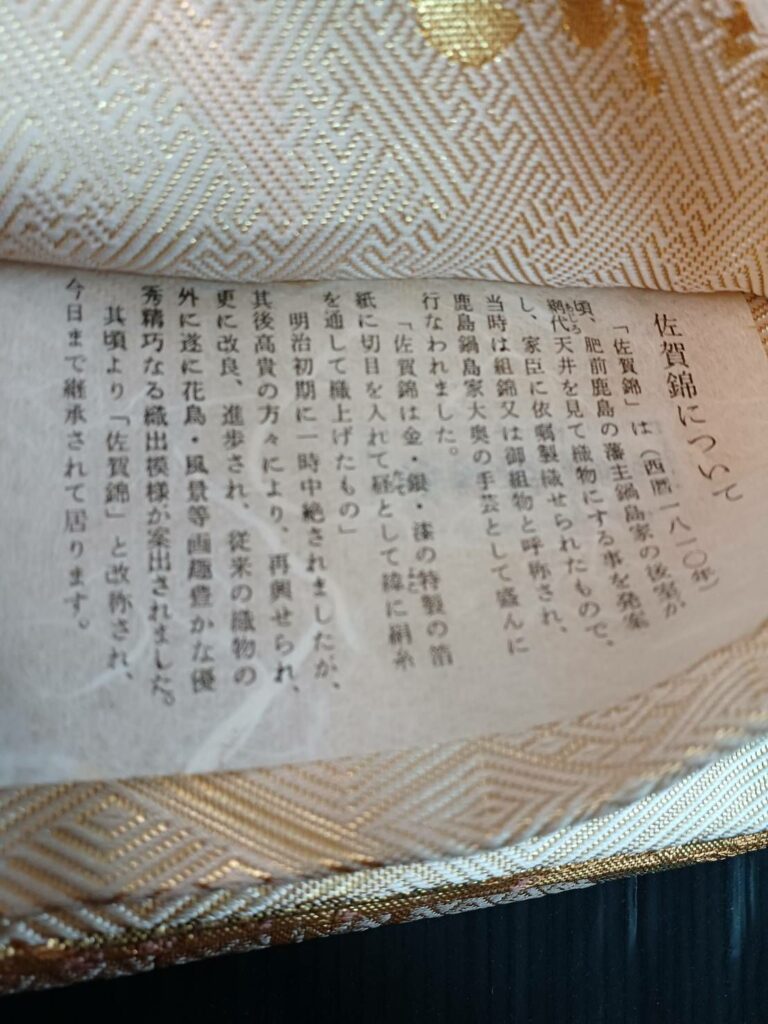 佐賀錦について
「佐賀錦」は（西暦一八一〇年）
頃、肥前鹿島の藩主鍋島家の後室が
網代天井を見て織物にする事を発案
あじろ
し、家臣に依嘱製織せられたもので、
当時は組錦又は御組物と呼称され、
鹿島鍋島家大奥の手芸として盛んに
行なわれました。
「佐賀錦は金・銀・漆の特製の箔
紙に切目を入れて経として緯に絹糸
たて
よこ
を通して織上げたもの」
明治初期に一時中絶されましたが、
其後高貴の方々により、再興せられ、
更に改良、進歩され、従来の織物の
外に遂に花鳥・風景等画趣豊かな優
秀精巧なる織出模様が案出されました。
其頃より「佐賀錦」と改称され、
今日まで継承されて居ります。